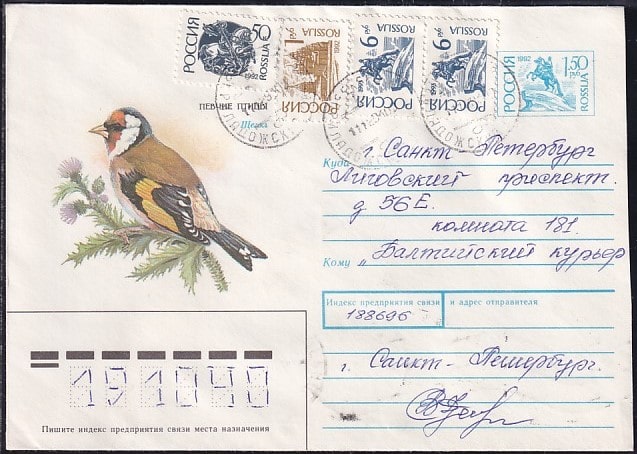 РОССИЯ
50
ROSSIJA
1992
РОССИЯ
1 руб
ROSSIJA
1992
РОССИЯ
6 руб
ROSSIJA
1992
РОССИЯ
6 руб
ROSSIJA
1992
РОССИЯ
1992
1·50 руб
ROSSIJA
ПЕВЧИЕ ПТИЦЫ
Щегол
Куда г. Санкт-Петербург
Лиговский проспект.
д 56Е.
комната 181.
Кому „Балтийский курьер
Индекс предприятия связи
и адрес отправителя
188696
г. Санкт-Петербург.
191040
Пишите индекс предприятия связи места назначения